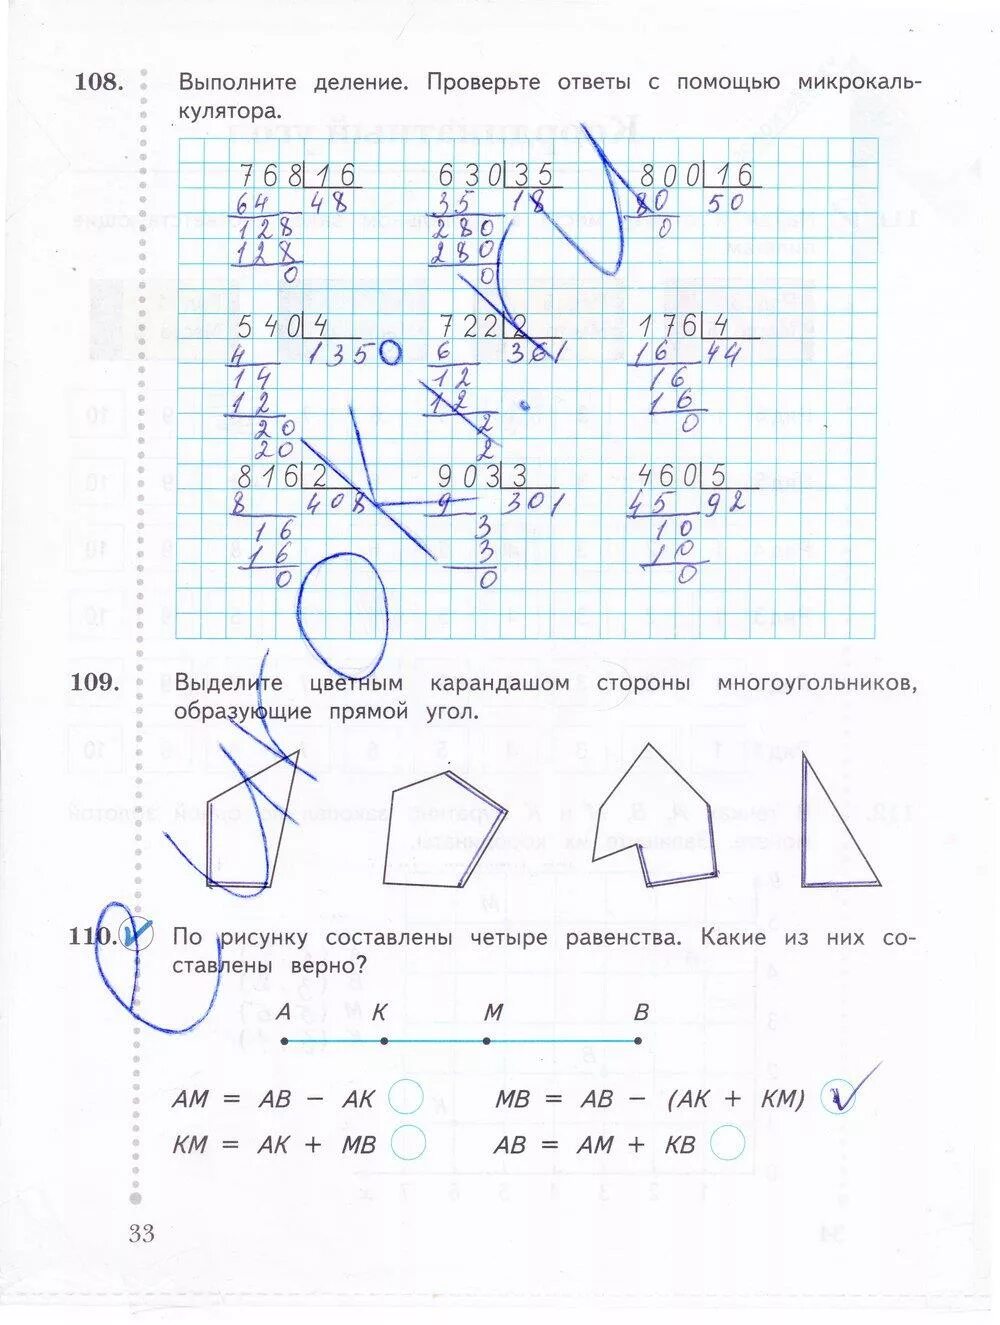 108. Выполните деление. Проверьте ответы с помощью микрокаль-
кулятора.
768|16 630|35 800|16
64 48 35 18 80 50
128 280 0
128 280
0 0
540|4 722|2 176|4
4 135 6 361 16 44
14 12 16
12 12 16
20 2 0
20 2
816|2 903|3 460|5
8 408 9 301 45 92
16 3 10
16 3 10
0 0 0
109. Выделите цветным карандашом стороны многоугольников,
образующие прямой угол.
110. По рисунку составлены четыре равенства. Какие из них со-
ставлены верно?
A K M B
AM = AB − AK MB = AB − (AK + KM)
KM = AK + MB AB = AM + KB
33